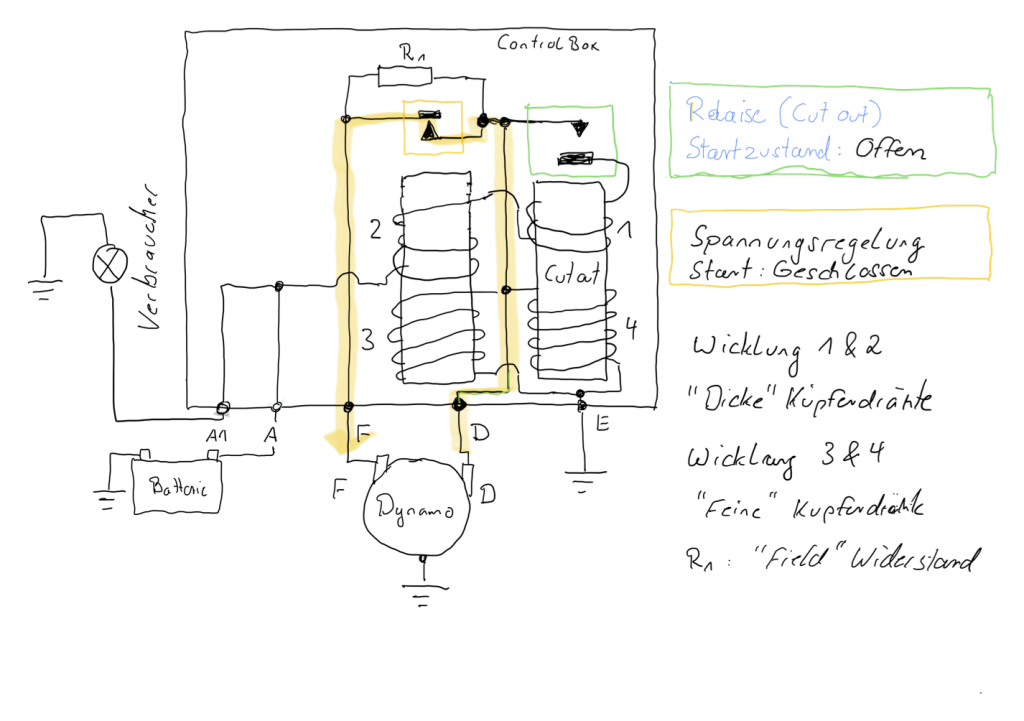 Control Box
R1
Relaise (Cut out)
Startzustand: Offen
Verbraucher
2
1
Spannungsregelung
Start: Geschlossen
Cut out
3
4
Wicklung 1 & 2
"Dicke" Kupferdrähte
A1
A
F
D
E
Wicklung 3 & 4
Batterie
F
D
"Feine" Kupferdrähte
Dynamo
R1: "Field" Widerstand